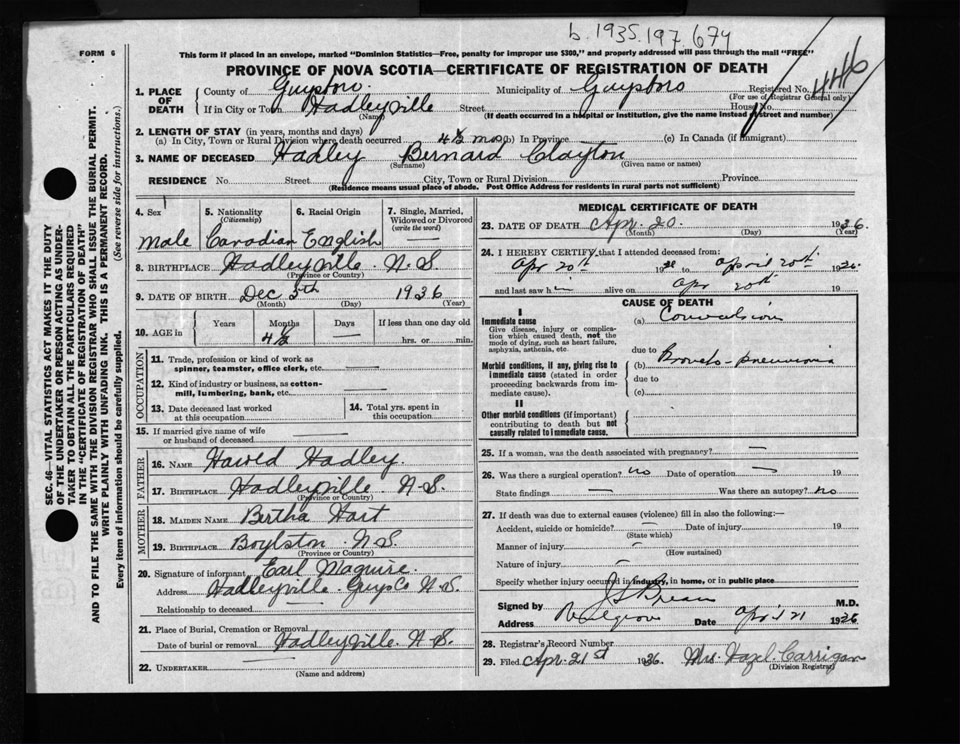 b. 1935.197674
FORM 6
This form if placed in an envelope, marked "Dominion Statistics—Free, penalty for improper use $300," and properly addressed will pass through the mail "FREE"
PROVINCE OF NOVA SCOTIA—CERTIFICATE OF REGISTRATION OF DEATH
1. PLACE OF DEATH County of Guysboro Municipality of Guysboro Registered No. 446
(For use of Registrar General only)
If in City or Town Hadleyville Street House No.
(Name) (If death occurred in a hospital or institution, give the name instead of street and number)
2. LENGTH OF STAY (in years, months and days)
(a) In City, Town or Rural Division where death occurred 4½ mos (b) In Province (c) In Canada (if immigrant)
3. NAME OF DECEASED Hadley Bernard Clayton
(Surname) (Given name or names)
RESIDENCE No. Street City, Town or Rural Division Province
(Residence means usual place of abode. Post Office Address for residents in rural parts not sufficient)
4. Sex Male
5. Nationality (Citizenship) Canadian
6. Racial Origin English
7. Single, Married, Widowed or Divorced (write the word) —
8. BIRTHPLACE Hadleyville N.S.
(Province or Country)
9. DATE OF BIRTH Dec 5th 1936
(Month) (Day) (Year)
10. AGE in Years Months Days If less than one day old
4½ — hrs. or min.
OCCUPATION
11. Trade, profession or kind of work as spinner, teamster, office clerk, etc. —
12. Kind of industry or business, as cotton-mill, lumbering, bank, etc. —
13. Date deceased last worked at this occupation
14. Total yrs. spent in this occupation
15. If married give name of wife or husband of deceased —
FATHER
16. NAME Harold Hadley.
17. BIRTHPLACE Hadleyville N.S.
(Province or Country)
MOTHER
18. MAIDEN NAME Bertha Hart
19. BIRTHPLACE Boylston N.S.
(Province or Country)
20. Signature of informant Earl Maguire
Address Hadleyville Guys Co N.S.
Relationship to deceased
21. Place of Burial, Cremation or Removal
Date of burial or removal Hadleyville. N.S.
22. UNDERTAKER —
(Name and address)
MEDICAL CERTIFICATE OF DEATH
23. DATE OF DEATH Apr. 20. 1936.
(Month) (Day) (Year)
24. I HEREBY CERTIFY that I attended deceased from:
Apr 20th 1936 to April 20th 1936
and last saw h— alive on Apr 20th 19
CAUSE OF DEATH
I
Immediate cause (a) Convulsion
Give disease, injury or complication which caused death, not the mode of dying, such as heart failure, asphyxia, asthenia, etc.
due to
Morbid conditions, if any, giving rise to immediate cause (stated in order proceeding backwards from immediate cause). (b) Broncho-pneumonia
due to
(c)
II
Other morbid conditions (if important) contributing to death but not causally related to immediate cause.
25. If a woman, was the death associated with pregnancy? —
26. Was there a surgical operation? no Date of operation — 19
State findings — Was there an autopsy? no
27. If death was due to external causes (violence) fill in also the following:—
Accident, suicide or homicide? — Date of injury 19
(State which)
Manner of injury —
(How sustained)
Nature of injury —
Specify whether injury occurred in industry, in home, or in public place
Signed by M.D.
Address Mulgrave Date April 21 1936
28. Registrar's Record Number
29. Filed Apr. 21st 1936 Mrs. Hazel Carrigan
(Division Registrar)
SEC. 46—VITAL STATISTICS ACT MAKES IT THE DUTY
OF THE UNDERTAKER OR PERSON ACTING AS UNDER-
TAKER TO OBTAIN ALL THE PARTICULARS REQUIRED
IN THE "CERTIFICATE OF REGISTRATION OF DEATH"
AND TO FILE THE SAME WITH THE DIVISION REGISTRAR WHO SHALL ISSUE THE BURIAL PERMIT.
WRITE PLAINLY WITH UNFADING INK. THIS IS A PERMANENT RECORD.
Every item of information should be carefully supplied. (See reverse side for instructions.)